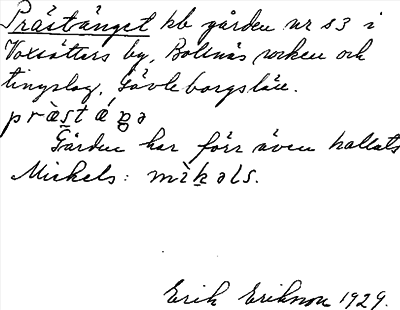 Prästänget hb gården nr 53 i
Voxsätters by, Bollnäs socken och
tingslag, Gävleborgslän.
Gården har förr även kallats
Mickels:
Erik Erikson 1929.